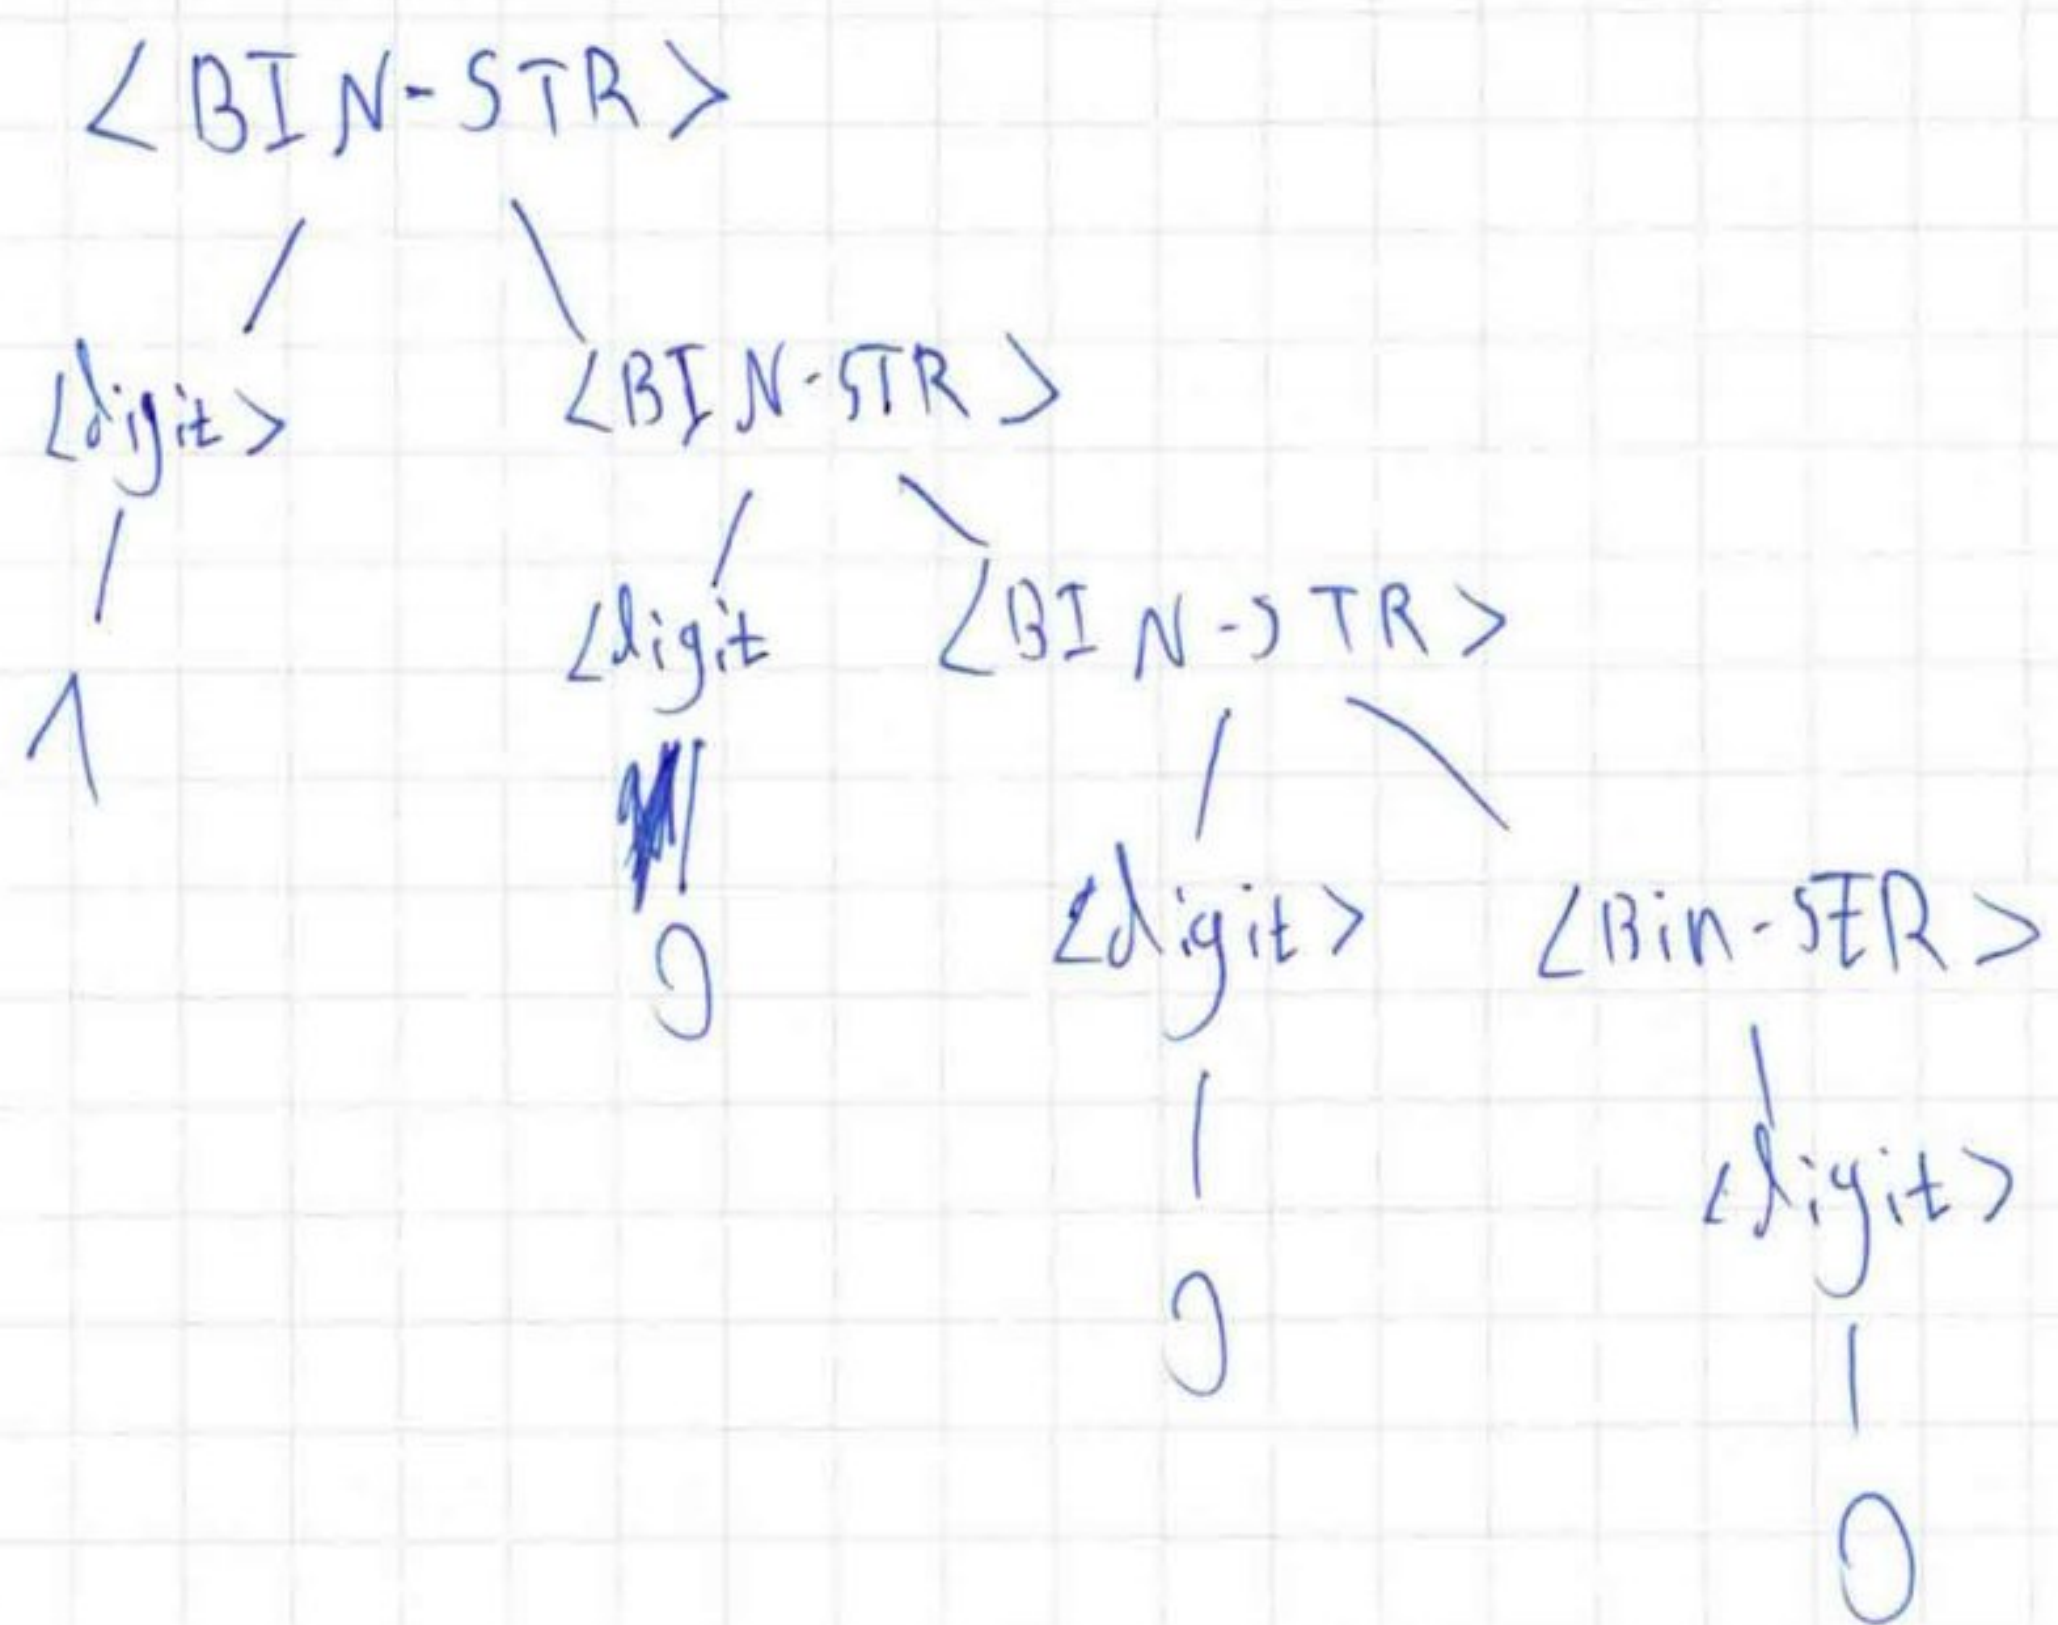 <BIN-STR>
<digit> <BIN-STR>
1 <digit <BIN-STR>
0 <digit> <Bin-StR>
<digit>
0
0